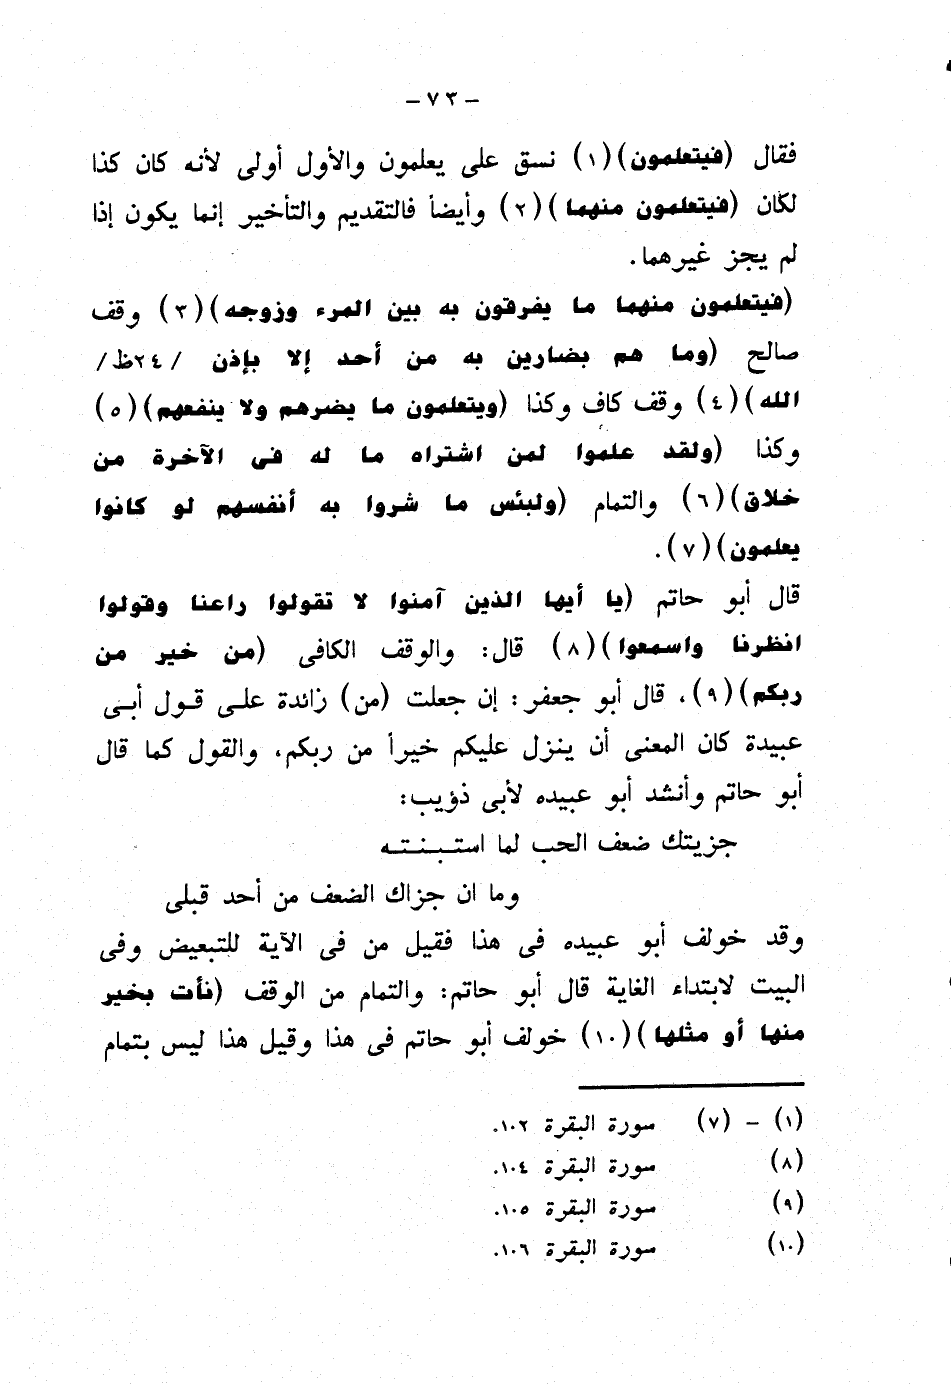 – ٧٣ –
فقال (فيتعلمون)(١) نسق على يعلمون والأول أولى لأنه كان كذا
لكان (فيتعلمون منهما)(٢) وأيضاً فالتقديم والتأخير إنما يكون إذا
لم يجز غيرهما.
(فيتعلمون منهما ما يفرقون به بين المرء وزوجه)(٣) وقف
صالح (وما هم بضارين به من أحد إلا بإذن /٢٤ظ/
الله)(٤) وقف كاف وكذا (ويتعلمون ما يضرهم ولا ينفعهم)(٥)
وكذا (ولقد علموا لمن اشتراه ما له فى الآخرة من
خلاق)(٦) والتمام (ولبئس ما شروا به أنفسهم لو كانوا
يعلمون)(٧).
قال أبو حاتم (يا أيها الذين آمنوا لا تقولوا راعنا وقولوا
انظرنا واسمعوا)(٨) قال: والوقف الكافى (من خير من
ربكم)(٩)، قال أبو جعفر: إن جعلت (من) زائدة على قول أبى
عبيدة كان المعنى أن ينزل عليكم خيراً من ربكم، والقول كما قال
أبو حاتم وأنشد أبو عبيده لأبى ذؤيب:
جزيتك ضعف الحب لما استبنته
وما ان جزاك الضعف من أحد قبلى
وقد خولف أبو عبيده فى هذا فقيل من فى الآية للتبعيض وفى
البيت لابتداء الغاية قال أبو حاتم: والتمام من الوقف (نأت بخير
منها أو مثلها)(١٠) خولف أبو حاتم فى هذا وقيل هذا ليس بتمام
(١) – (٧) سورة البقرة ١٠٢.
(٨) سورة البقرة ١٠٤.
(٩) سورة البقرة ١٠٥.
(١٠) سورة البقرة ١٠٦.